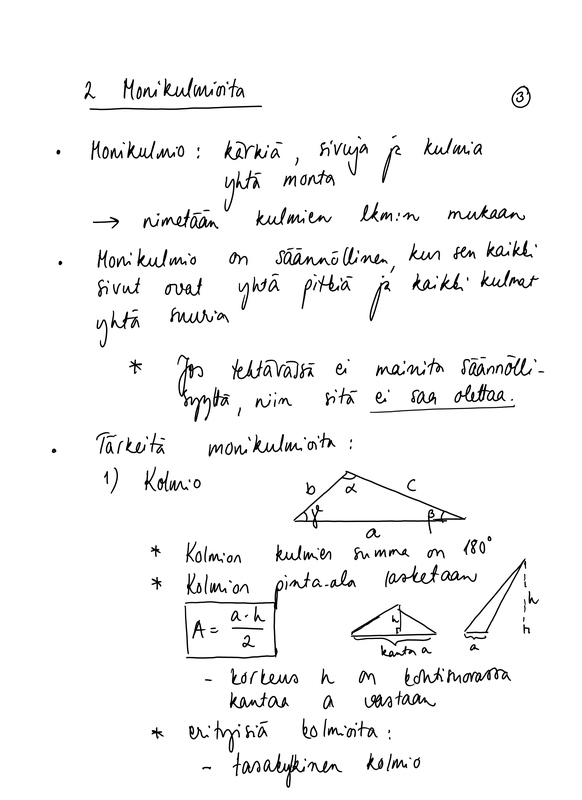 2 Monikulmioita
3
• Monikulmio: kärkiä, sivuja ja kulmia
yhtä monta
→ nimetään kulmien lkm:n mukaan
• Monikulmio on säännöllinen, kun sen kaikki
sivut ovat yhtä pitkiä ja kaikki kulmat
yhtä suuria
* Jos tehtävässä ei mainita säännölli-
syyttä, niin sitä ei saa olettaa.
• Tärkeitä monikulmioita:
1) Kolmio
b α c
γ β
a
* Kolmion kulmien summa on 180°
* Kolmion pinta-ala lasketaan
A = a·h / 2
h
kanta a
h
a
- korkeus h on kohtisuorassa
kantaa a vastaan
* erityisiä kolmioita:
- tasakylkinen kolmio